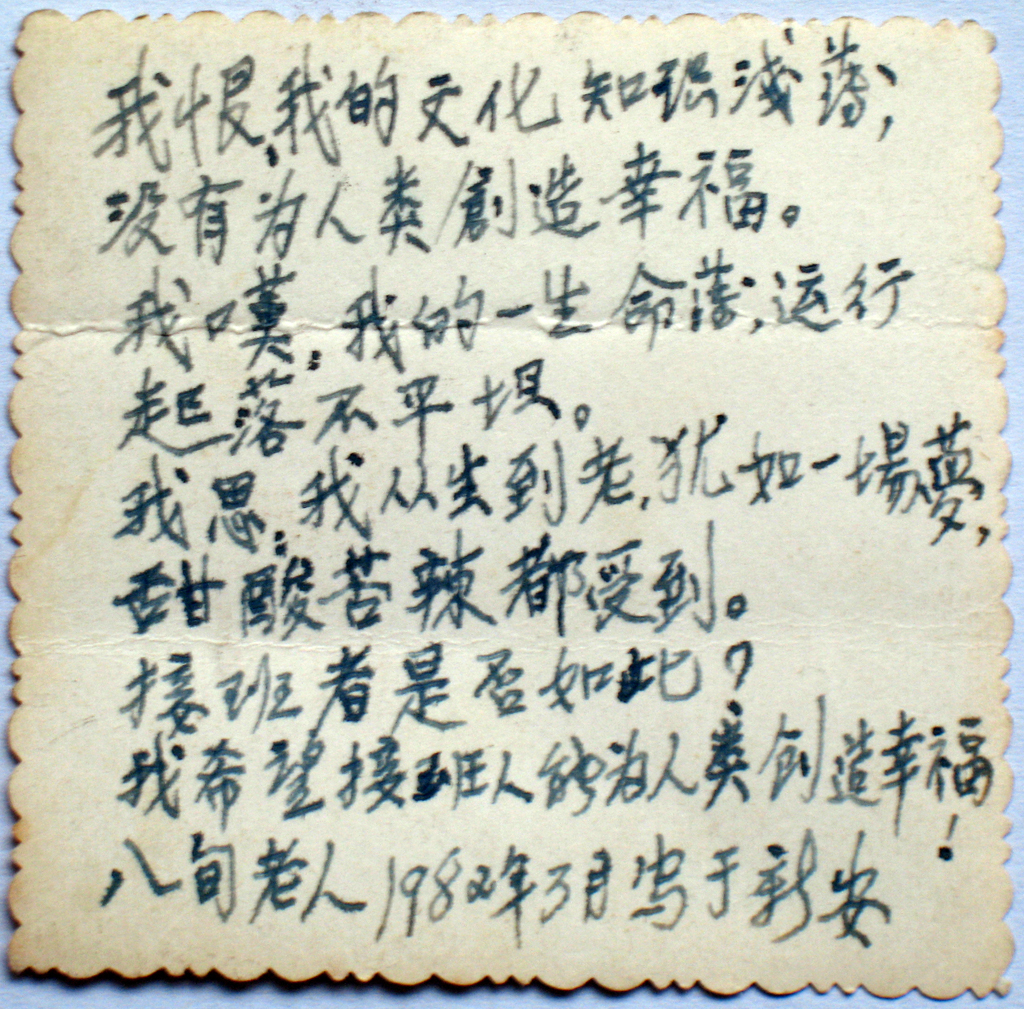 我恨,我的文化知识浅薄,
没有为人类創造幸福。
我嘆,我的一生命薄,运行
起落不平坦。
我思,我从生到老,犹如一場夢,
甜酸苦辣都受到。
接班者是否如此?
我希望接班人能为人类创造幸福!
八旬老人1982年3月写于新安